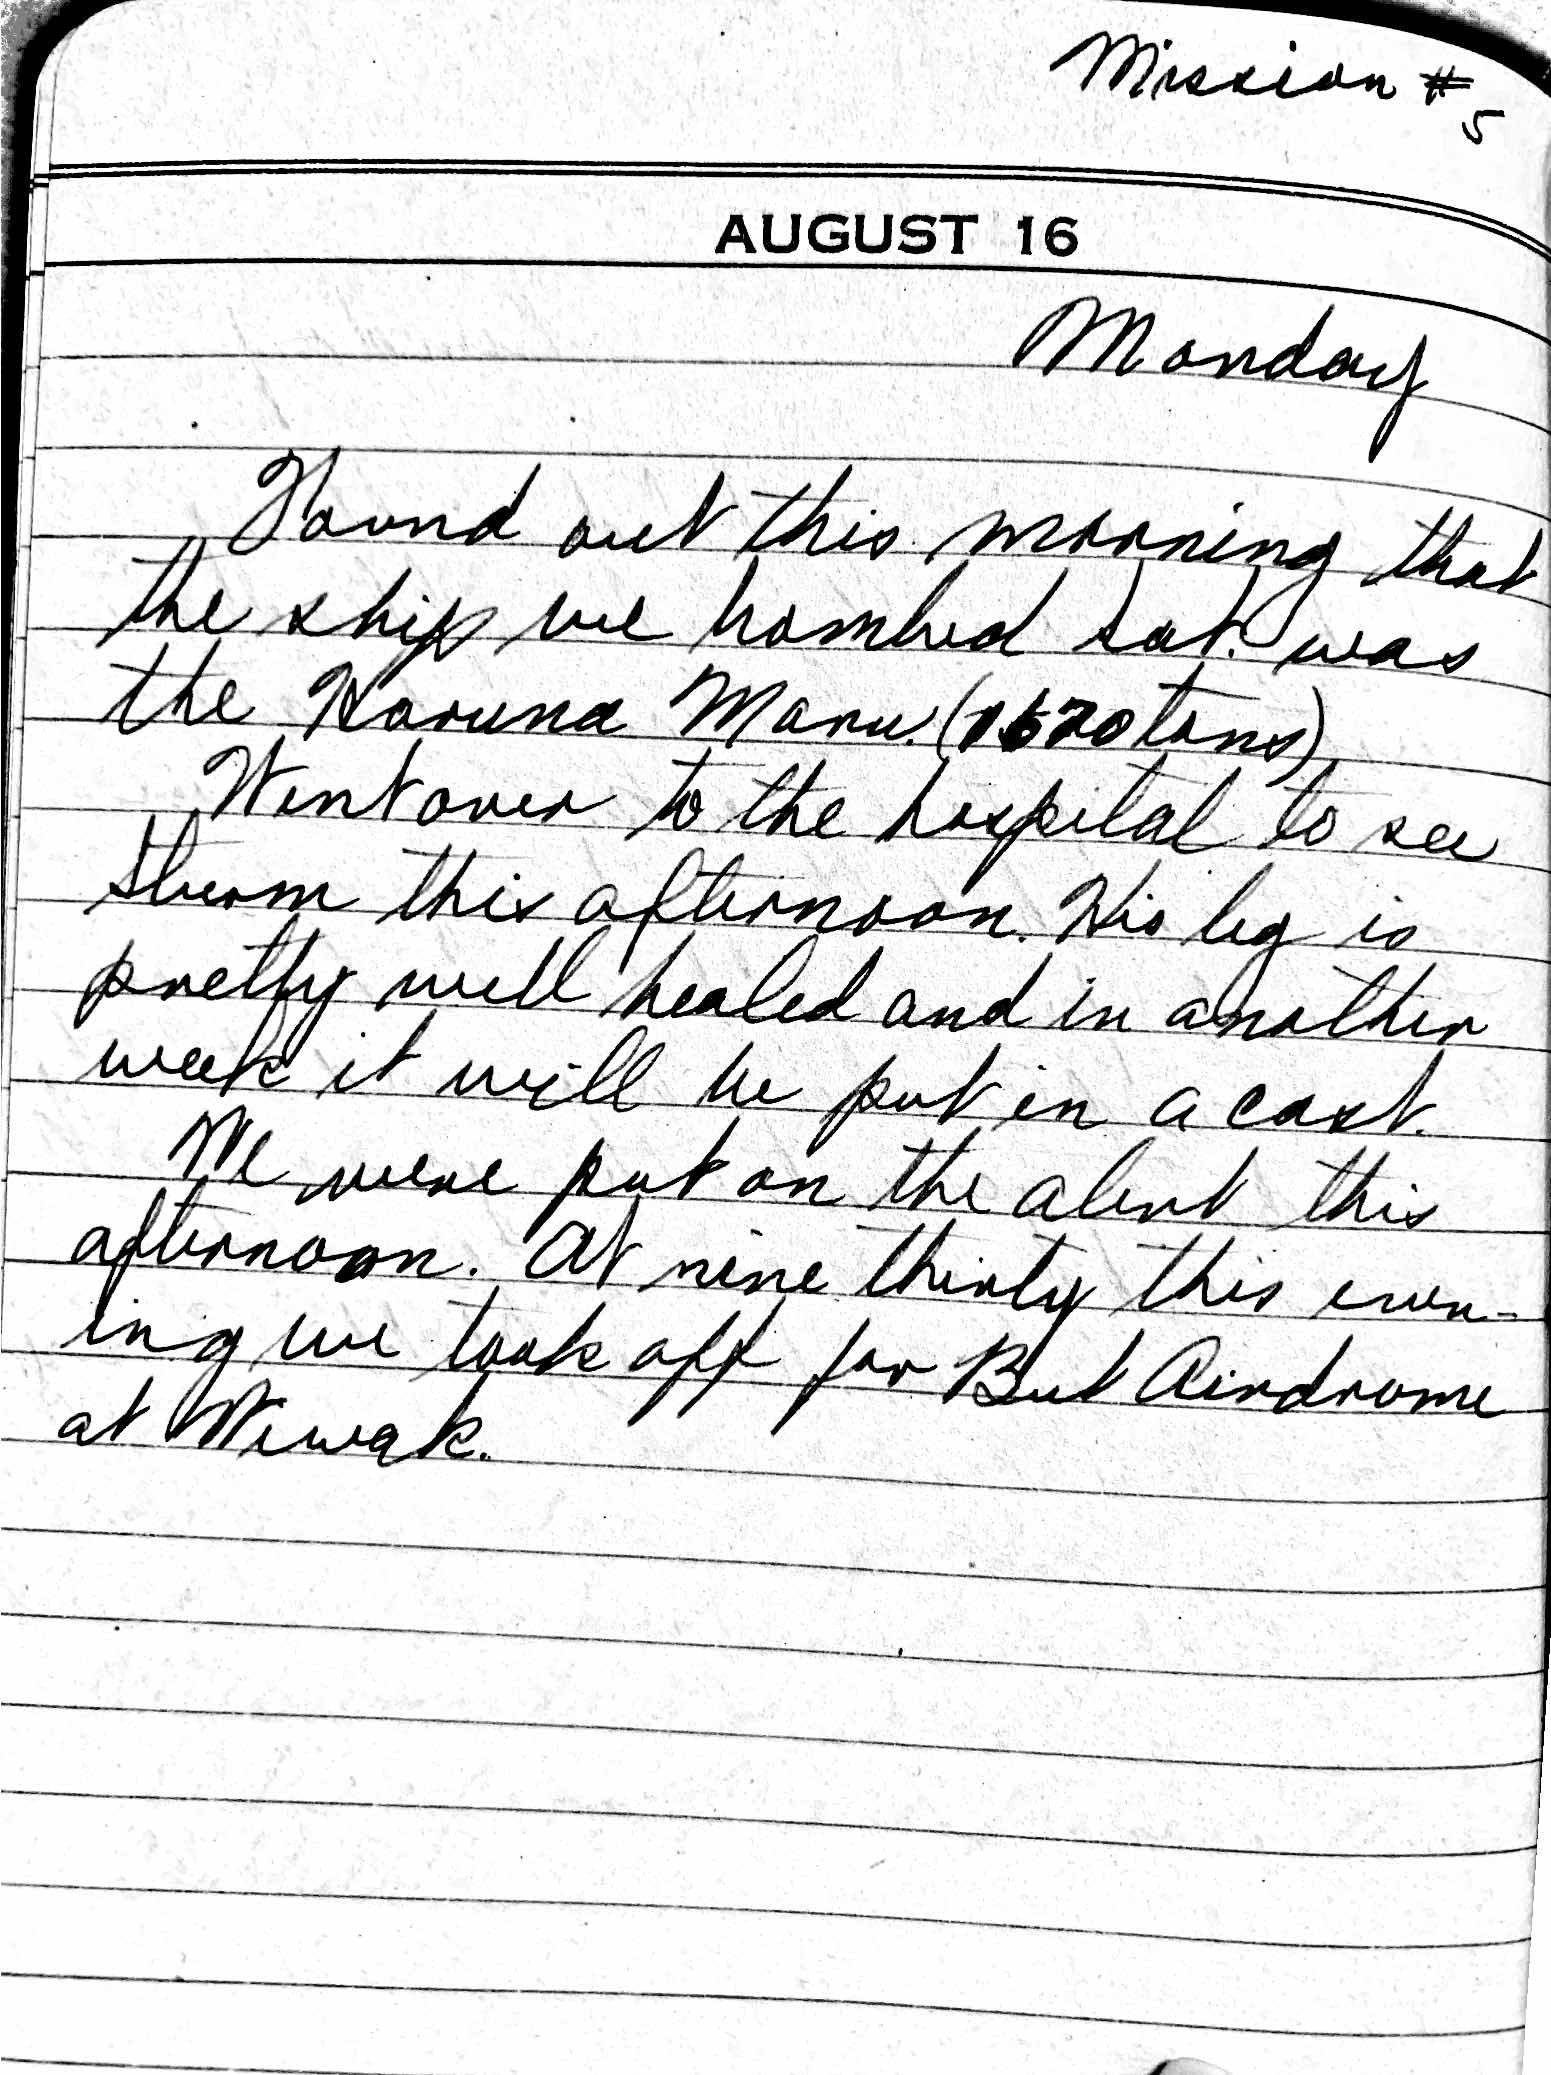 Mission #
5
AUGUST 16
Monday
Found out this morning that
the ship we bombed Sat. was
the Haruna Maru. (1620 tons)
Went over to the hospital to see
Sturm this afternoon. His leg is
pretty well healed and in another
week it will be put in a cast.
We were put on the alert this
afternoon. At nine thirty this even-
ing we took off for But Airdrome
at Wewak.